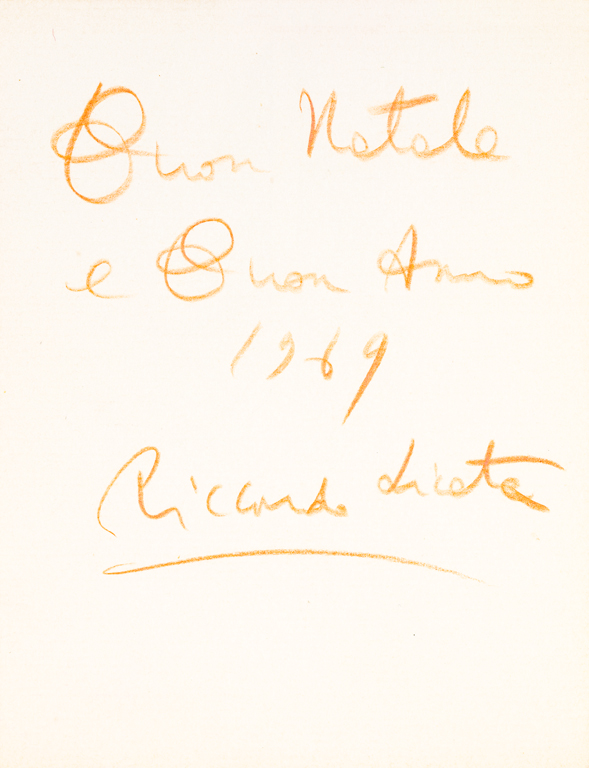 Buon Natale
e Buon Anno
1969
Riccardo Licata